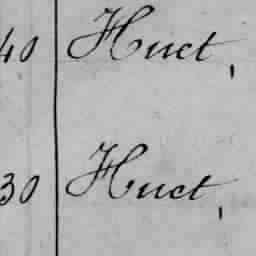 40 Huet,
30 Huet,